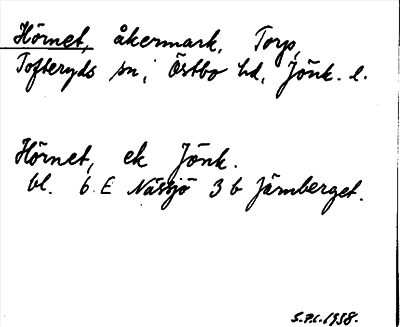 Hörnet, åkermark, Torp,
Tofteryds sn, Östbo hd, Jönk. l.
Hörnet, ek Jönk.
bl. 6 E Nässjö 3 b Järnberget.
S.P.L. 1958.